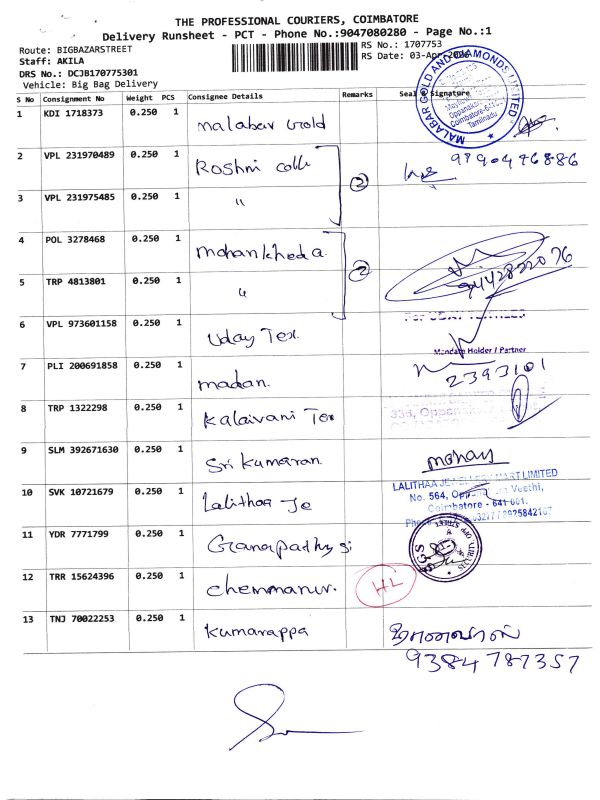 THE PROFESSIONAL COURIERS, COIMBATORE
Delivery Runsheet - PCT - Phone No.:9047080280 - Page No.:1
Route: BIGBAZARSTREET
RS No.: 1707753
Staff: AKILA
RS Date: 03-Apr-2026
DRS No.: DCJB170775301
Vehicle: Big Bag Delivery
S No Consignment No Weight PCS Consignee Details Remarks Seal & Signature
MALABAR GOLD AND DIAMONDS LIMITED
Oppanakara
Coimbatore-641
Tamilnadu
1 KDI 1718373 0.250 1 malabar Gold
2 VPL 231970489 0.250 1 Roshni colle 9790476886
3 VPL 231975485 0.250 1 " 2
4 POL 3278468 0.250 1 mohankheda
5 TRP 4813801 0.250 1 " 2 9442822076
6 VPL 973601158 0.250 1 Uday Tex.
Mandate Holder / Partner
7 PLI 200691858 0.250 1 madan. 2393101
8 TRP 1322298 0.250 1 Kalaivani Tex
9 SLM 392671630 0.250 1 Sri Kumaran mohan
10 SVK 10721679 0.250 1 Lalithaa Je
LALITHAA JEWELLERY MART LIMITED
No. 564, Oppanakara Veethi,
Coimbatore - 641 001.
11 YDR 7771799 0.250 1 Ganapathy si
SGS
12 TRR 15624396 0.250 1 chemmanur. HL
13 TNJ 70022253 0.250 1 Kumarappa
9384787357